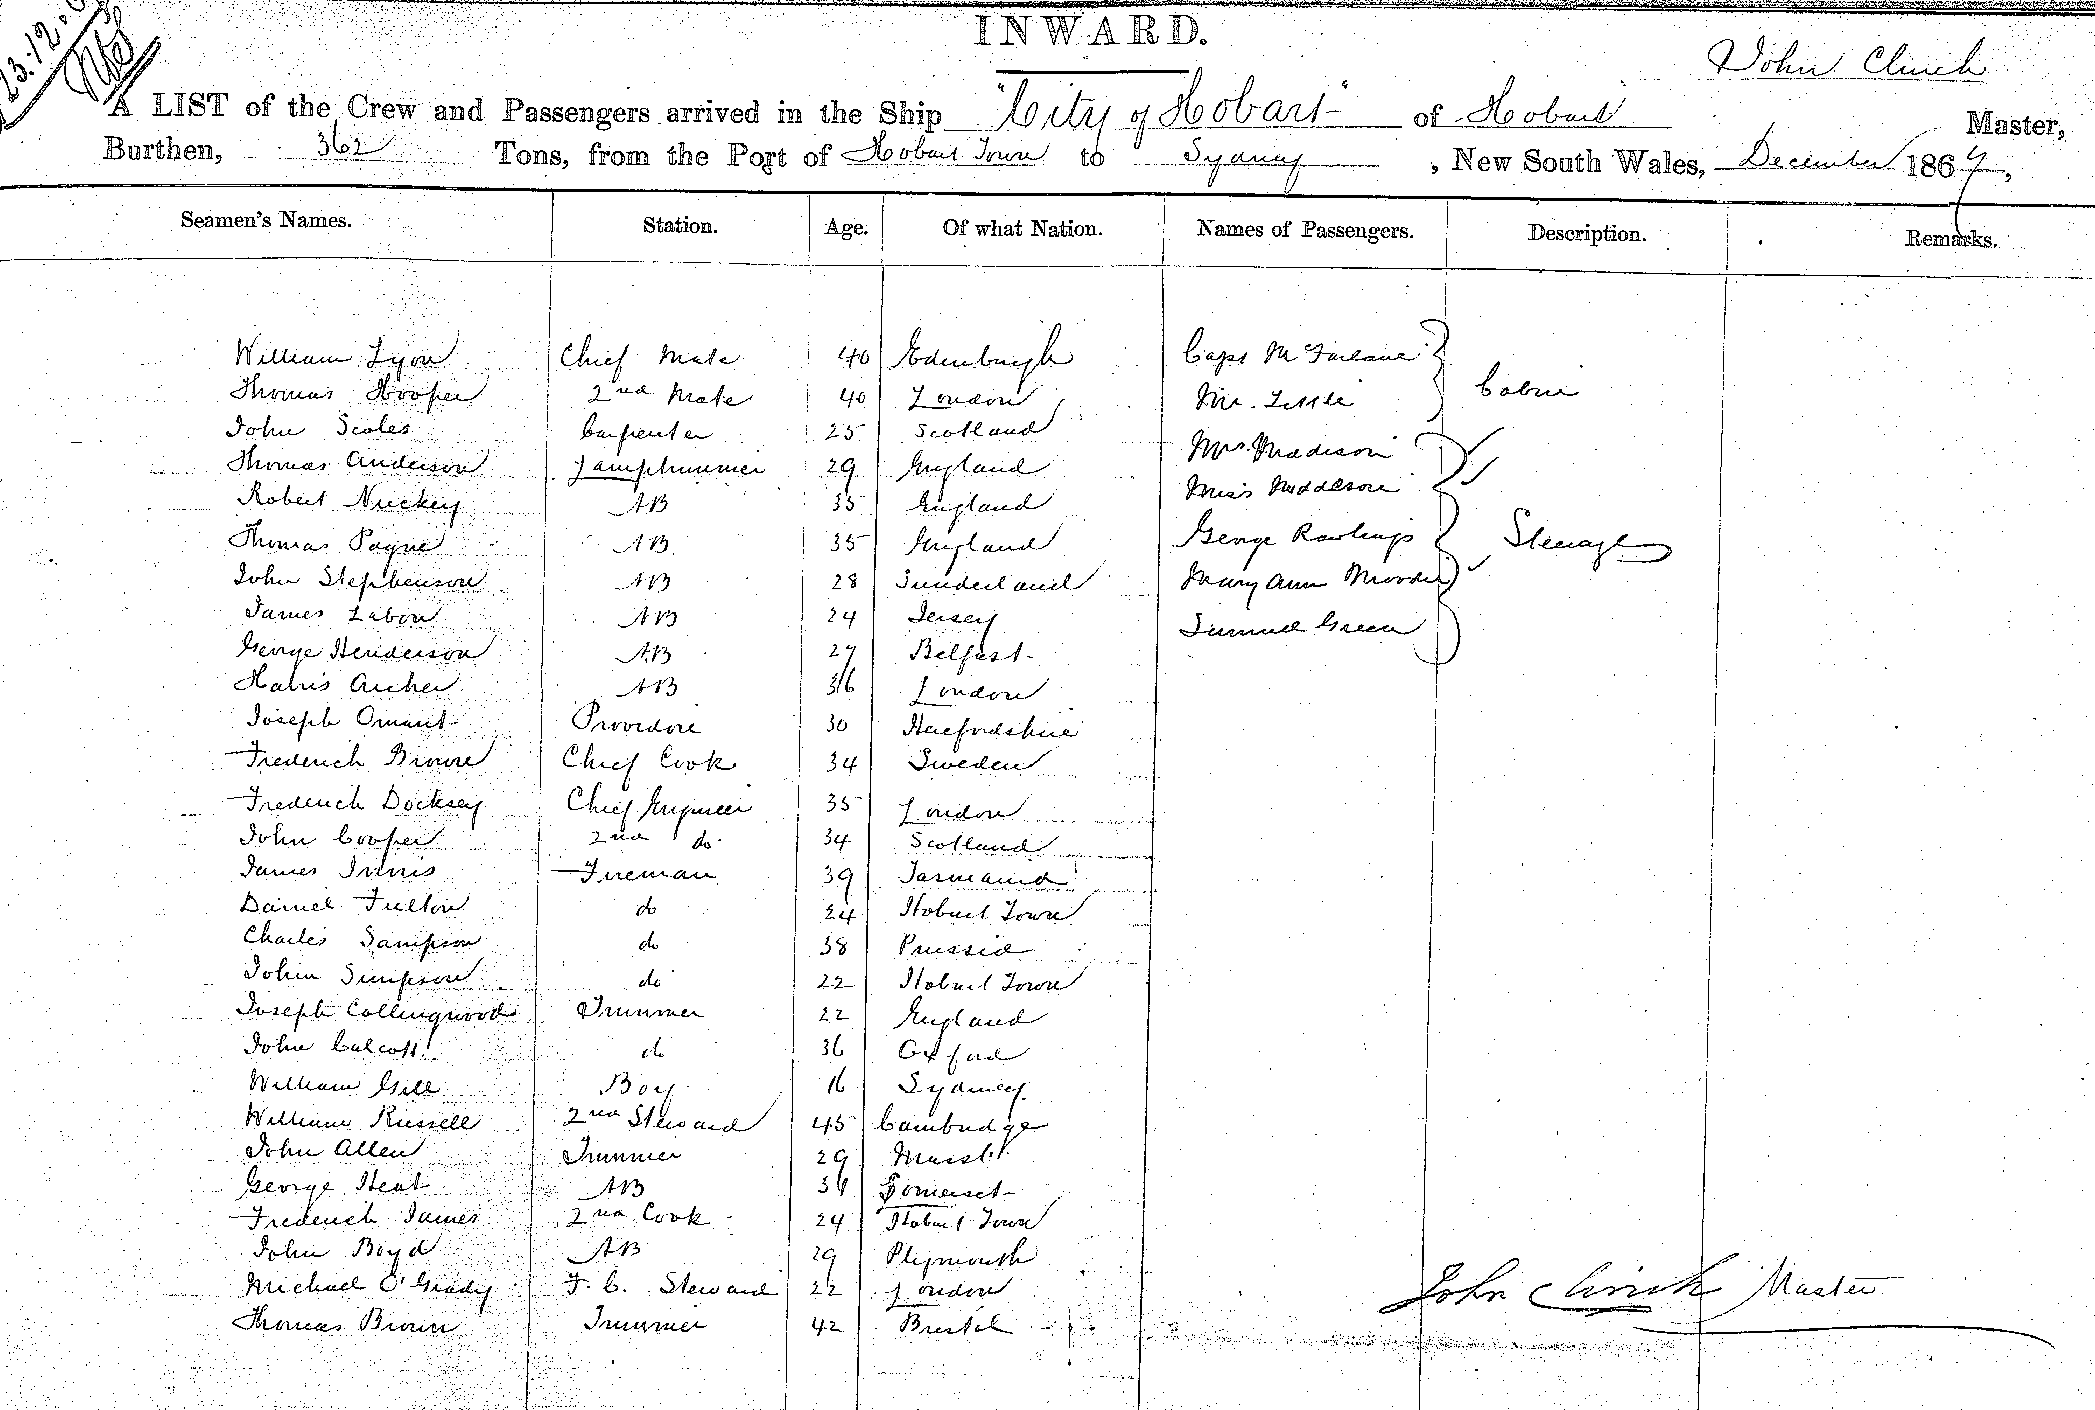 23.12.
INWARD.
John Clinch
A LIST of the Crew and Passengers arrived in the Ship "City of Hobart" of Hobart Master,
Burthen, 362 Tons, from the Port of Hobart Town to Sydney, New South Wales, December 186
Seamen's Names. Station. Age. Of what Nation. Names of Passengers. Description. Remarks.
William Lyon Chief Mate 40 Edinburgh Capt McFarlane Cabin
Thomas Hooper 2nd Mate 40 London Mr. Little
John Scoles Carpenter 25 Scotland Mrs Maddison
Thomas Anderson Lamptrimmer 29 England Miss Maddison
Robert Nuckey AB 35 England George Rawlings Steerage
Thomas Payne AB 35 England Mary Ann
John Stephenson AB 28 Sunderland Samuel Green
James Labon AB 24 Jersey
George Henderson AB 27 Belfast
Harris Archer AB 36 London
Joseph Omant Providore 30 Herefordshire
Frederick Brown Chief Cook 34 Sweden
Frederick Docksey Chief Engineer 35 London
John Cooper 2nd do 34 Scotland
James Innis Fireman 39 Tasmania
Daniel Fulton do 24 Hobart Town
Charles Sampson do 38 Prussia
John Simpson do 22 Hobart Town
Joseph Collingwood Trimmer 22 England
John Calcott do 36 Oxford
William Gill Boy 16 Sydney
William Russell 2nd Steward 45 Cambridge
John Allen Trimmer 29
George Heat AB Somerset
Frederick James 2nd Cook 24 Hobart Town
John Boyd AB 29 Plymouth
Michael O'Grady F. C. Steward 22 London
Thomas Brown Trimmer 42 Bristol
John Clinch Master